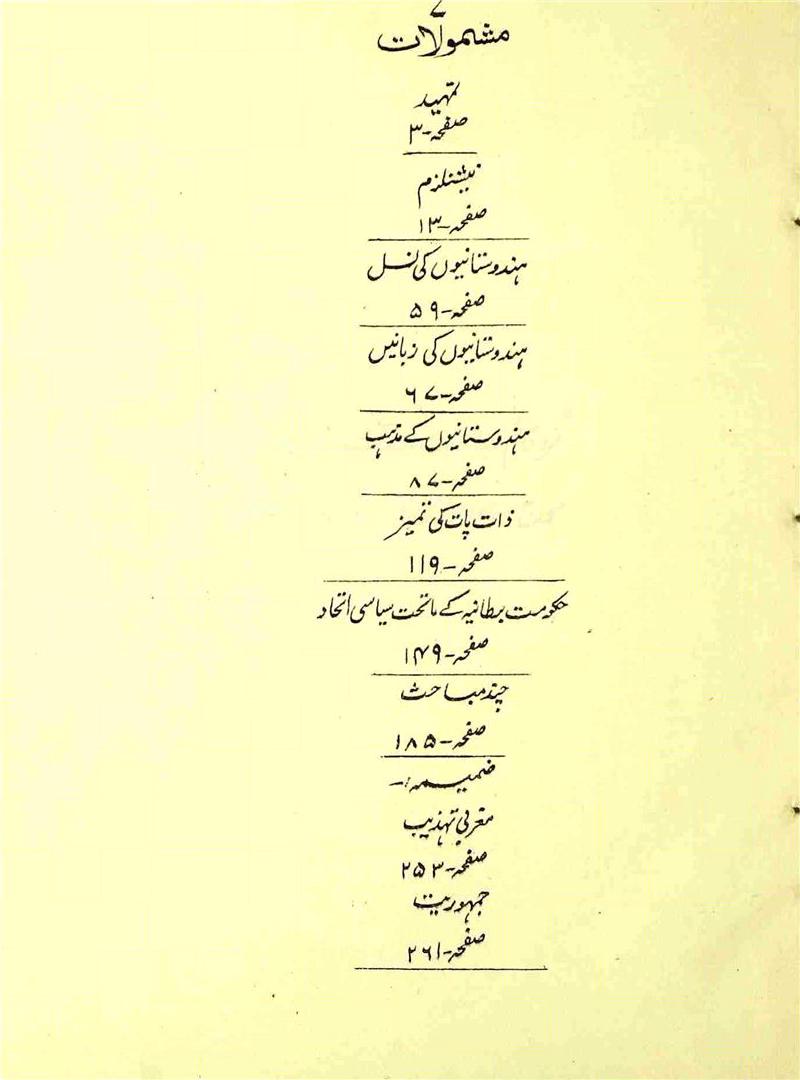 مشمولات
تمہید
صفحہ-۳
نیشنلزم
صفحہ-۱۳
ہندوستانیوں کی نسل
صفحہ-۵۹
ہندوستانیوں کی زبانیں
صفحہ-۶۷
ہندوستانیوں کے مذہب
صفحہ-۸۷
ذات پات کی تمیز
صفحہ-۱۱۹
حکومت برطانیہ کے ماتحت سیاسی اتحاد
صفحہ-۱۴۹
چند مباحث
صفحہ-۱۸۵
ضمیمہ:-
مغربی تہذیب
صفحہ-۲۵۳
جمہوریت
صفحہ-۲۶۱